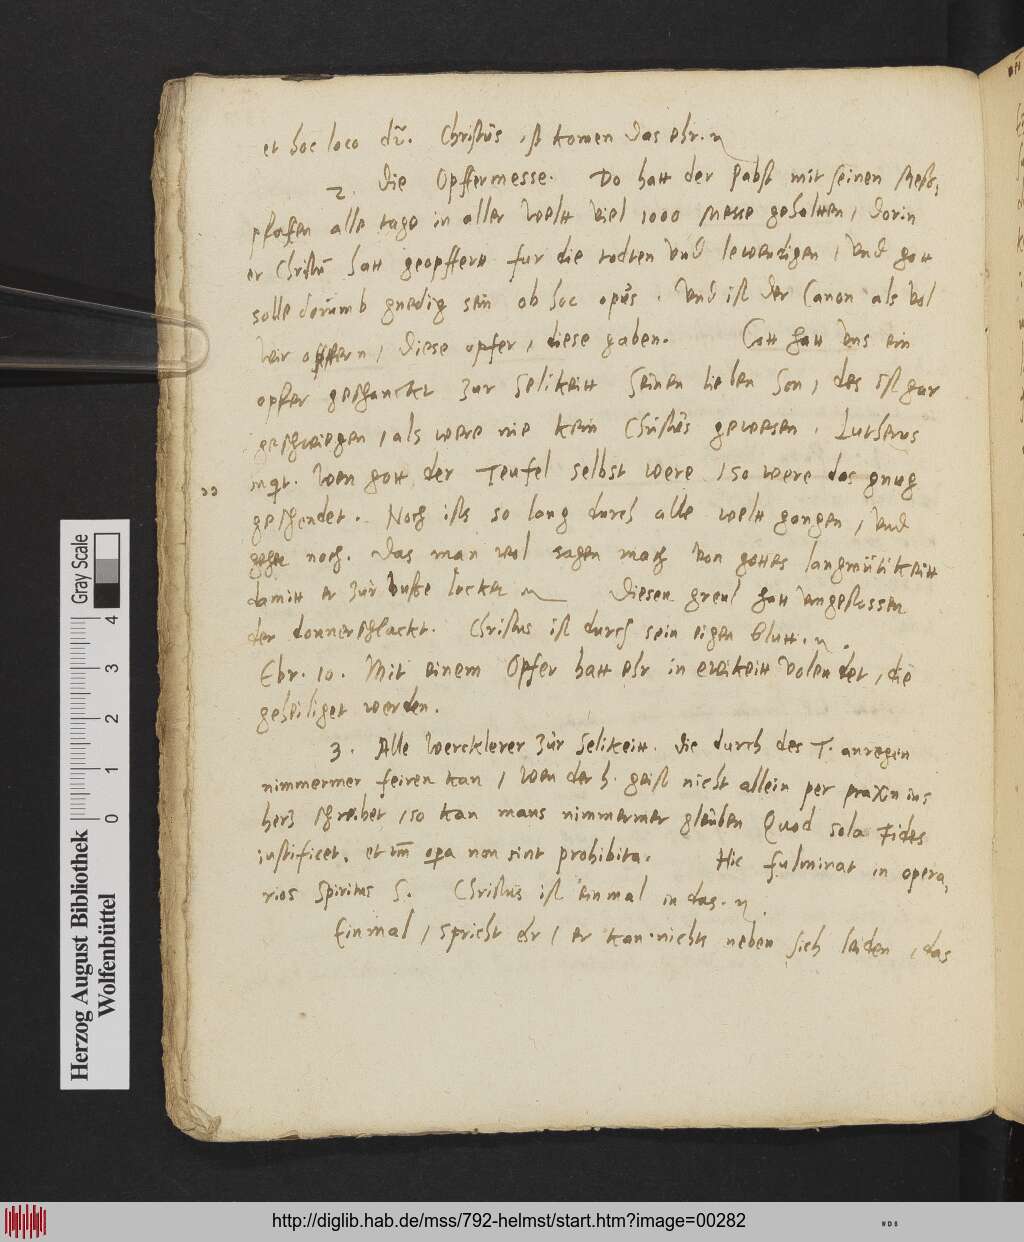 et hoc loco dr̄. Christus ist komen das ehr.
2. Die Opffermesse. Do hatt der Pabst mit seinen Meß-
pfafen alle tage in aller Welt viel 1000 Messe gehaltten, dorin
er Christū hatt geopffertt fur die todten und lewendigen, und gott
solle dorumb gnedig sein ob hoc opus. Und ist der Canon als vol
wir opffern, diese opfer, diese gaben. Gott hatt uns ein
opfer geschanckt zur selikeitt seinen lieben Son, des ist gar
geschwiegen, als were nie kein Christus gewesen. Lutherus
inqt. Wen gott der Teufel selbst were, so were das gnug
geschendet. Noch ists so lang durch alle welt gangen, und
gehet noch. Das man wol sagen mach von gottes langmutikeitt
damitt er zur busse locket Diesen greul hatt umgestossen
der donnerschlackt. Christus ist durch sein eigen Blutt.
Ebr. 10. Mit einem Opfer hatt ehr in ewikeitt volendet, die
geheiliget werden.
3. Alle Wercklerer zur selikeitt. Die durch des T. anregen
nimmermer feiren kan, Wen der h. geist nicht allein per praxin ins
herz schreibet, so kan mans nimmermer gleuben Quod sola Fides
iustificet, et tm̄ opa non sint prohibita. Hic fulminat in opera-
rios Spiritus S. Christus ist einmal in das.
Einmal, spricht ehr, er kan nichts neben sich leiden, das
Herzog August Bibliothek
Wolfenbüttel
0 1 2 3 4
Gray Scale
http://diglib.hab.de/mss/792-helmst/start.htm?image=00282